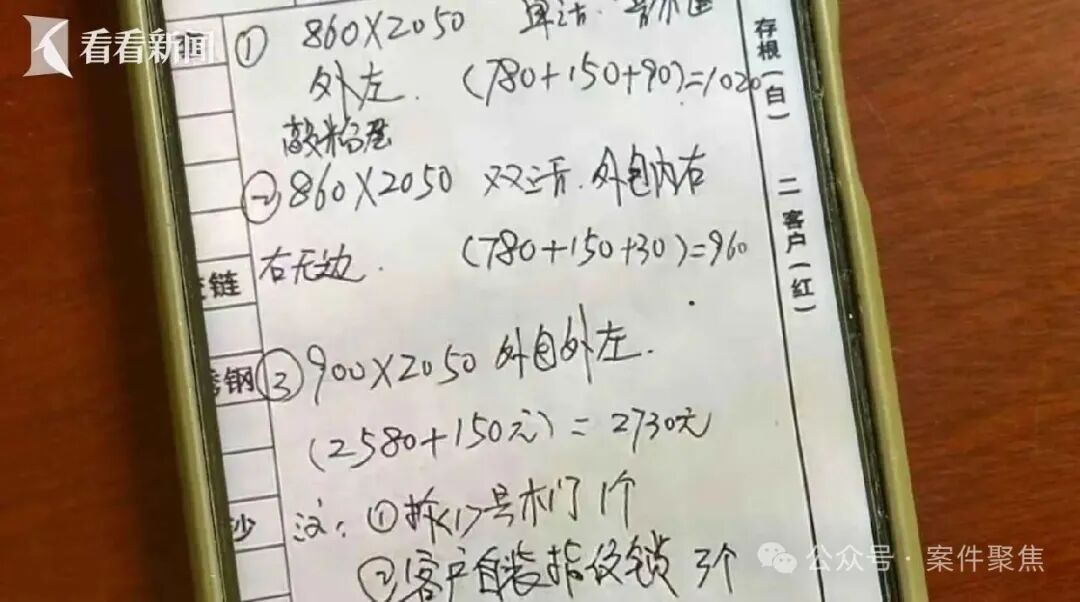 看看新闻
① 860×2050 单
外左. (780+150+90)=1020
② 860×2050 双 外包内右
右无边. (780+150+30)=960
③ 900×2050 外包外左.
(2580+150元) = 2730元
注: ① 拆<1>号木门 1个
② 客户自装指纹锁 3个
链
钢
沙
存根(白) 二客户(红)
公众号·案件聚焦